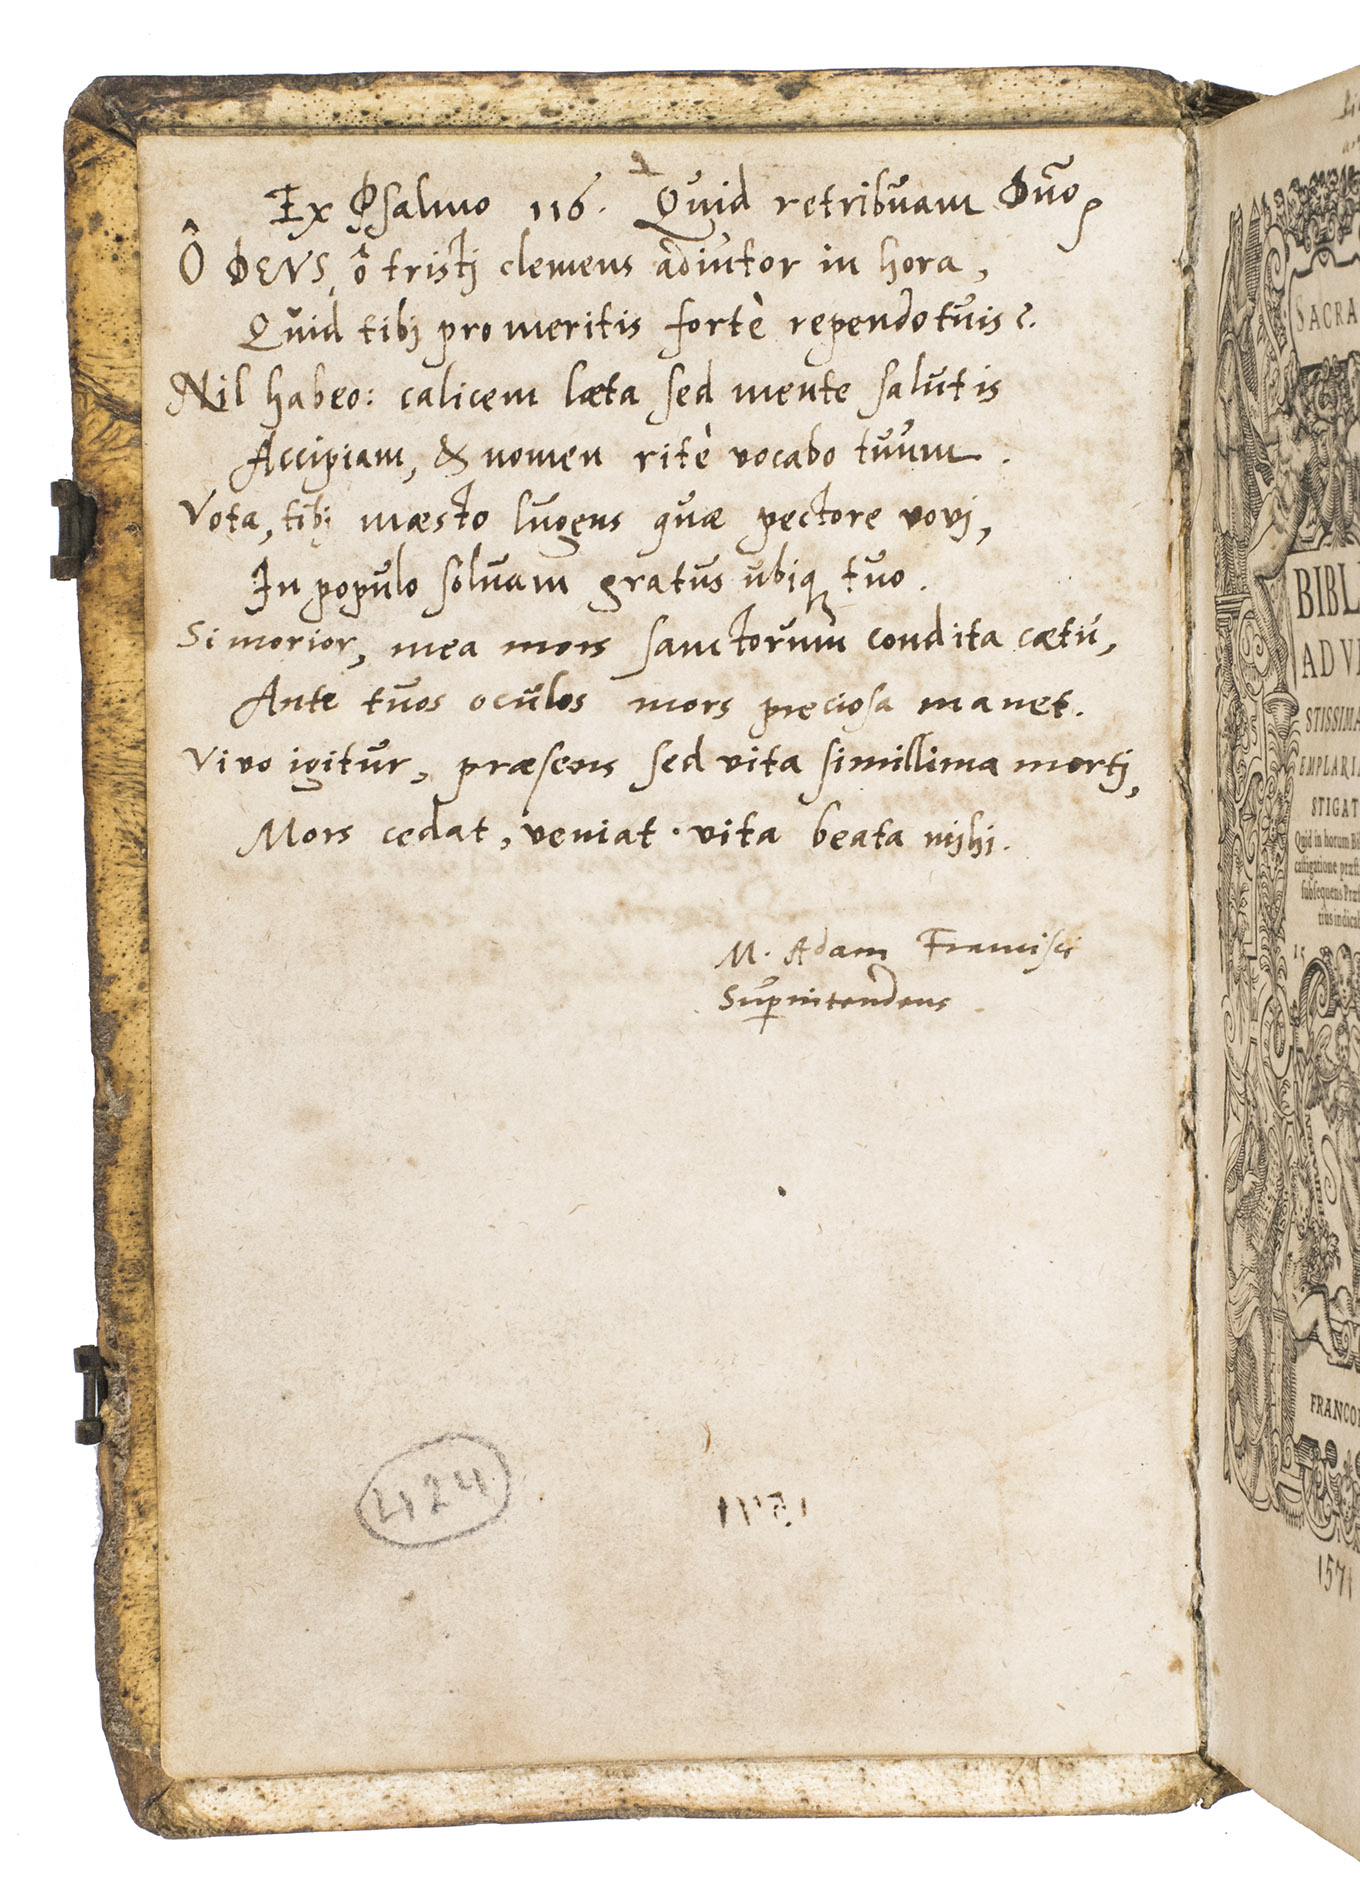 Ex Psalmo 116. Quid retribuam Dño
Ô DEVS, ô tristi clemens adiutor in hora,
Quid tibi pro meritis fortè rependo tuis?
Nil habeo: calicem læta sed mente salutis
Accipiam, & nomen ritè vocabo tuum.
Vota, tibi mæsto lugens quæ pectore vovi,
In populo soluam gratus ubiq tuo.
Si morior, mea mors sanctorum condita cætu,
Ante tuos oculos mors preciosa manet.
Vivo igitur, præsens sed vita simillima morti,
Mors cedat, veniat vita beata mihi.
M. Adam Francisci
Supintendens
424
1571
SACRA
BIBL
AD VE
STISSIMA
EMPLARI
STIGAT
Quid in horum Bi
castigatione præst
subsequens Præf
tius indica
15
FRANCO
1571